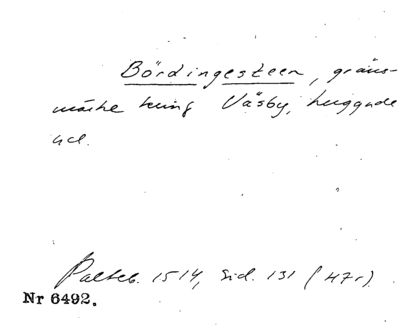 Bördingesteen, gräns-
märke kring Väsby, huggade
ucl.
Palteb. 1514, sid. 131 (47r)
Nr 6492.